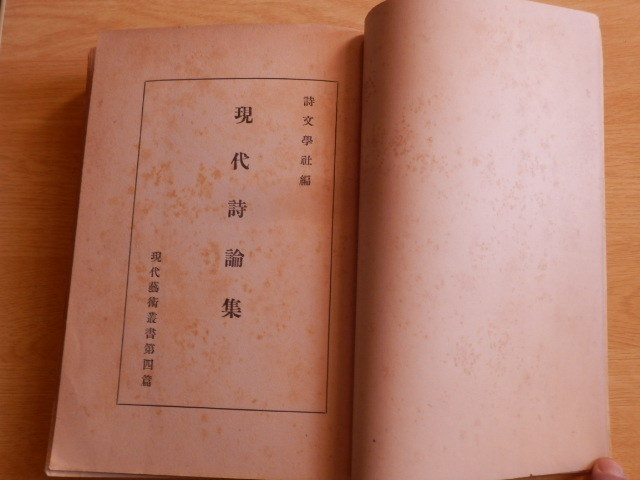 詩文學社編
現代詩論集
現代藝術叢書第四篇